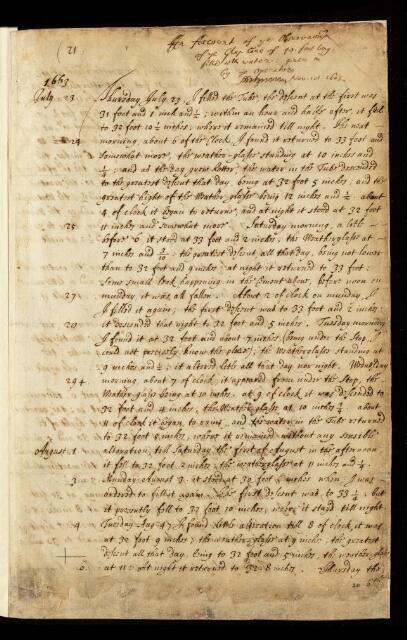 (21
An Account of ye Observations
of ye Glass Cane of 40 foot long,
filled with water, given in
by ye operator
Nov. 1663.
1663
July. 23 Thursday July 23. I filled the Tube, the descent at the first was
31 foot and 1 inch and ½; within an hour and halfe after, it fell
to 32 foot 10½ inches, where it remained till night. The next
24 morning, about 6 of the Clock, I found it returned to 33 foot and
somewhat more, the weather-glasse standing at 10 inches and
½; and as the day grew hotter, the water in the Tube descended
to the greatest descent that day, being at 32 foot 5 inches, and the
greatest hight of the Weather-glasse being 12 inches and ½. about
4 of clock it began to returne, and at night it stood at 32 foot
25 11 inches and somewhat more. Saturday morning, a litle
before 6, it stood at 33 foot and 2 inches, the Weatherglasse at
7 inches and 3/10; the greatest descent all that day, being not lower
than to 32 foot and 9 inches: at night it returned to 33 foot:
Some small leek happening in the Cement above, before noon on
27 munday, it was all fallen. About 2 of clock on munday, I
filled it again; the first descent was to 33 foot and 2 inches:
28 it descended that night to 32 foot and 5 inches. Tuesday morning
I found it at 32 foot and about 7 inches (being under the Stop,
could not precisely know the place) the Weatherglasse standing at
9 inches and ½; it altered litle all that day nor night. Wednsday
29 morning, about 7 of clock, it appeared from under the Stop, the
Weather-glasse being at 10 inches. at 9 of clock, it was descended to
32 foot and 4 inches, the Weather glasse at 10 inches ½. about
11 of clock it began to raine, and the water in the Tube returned
to 32 foot 5 inches, where it remained without any sensible
August. 1 alteration, till Saturday the first of August in the afternoon
it fell to 32 foot 2 inches, the weatherglasse at 11 inches and ½.
3 Munday August 3. it stood at 30 foot 2 inches when I was
ordered to fill it again. The first descent was to 33½, but
it presently fell to 32 foot 10 inches, where it stood till night.
4 Tuesday Aug. 4. I found litle alteration till 8 of clock, it was
at 32 foot 9 inches, the weather-glasse at 9 inches, the greatest
descent all that day, being to 32 foot and 5 inches, the weather-glasse
6 at 11: at night it returned to 32. 8 inches. Thursday the